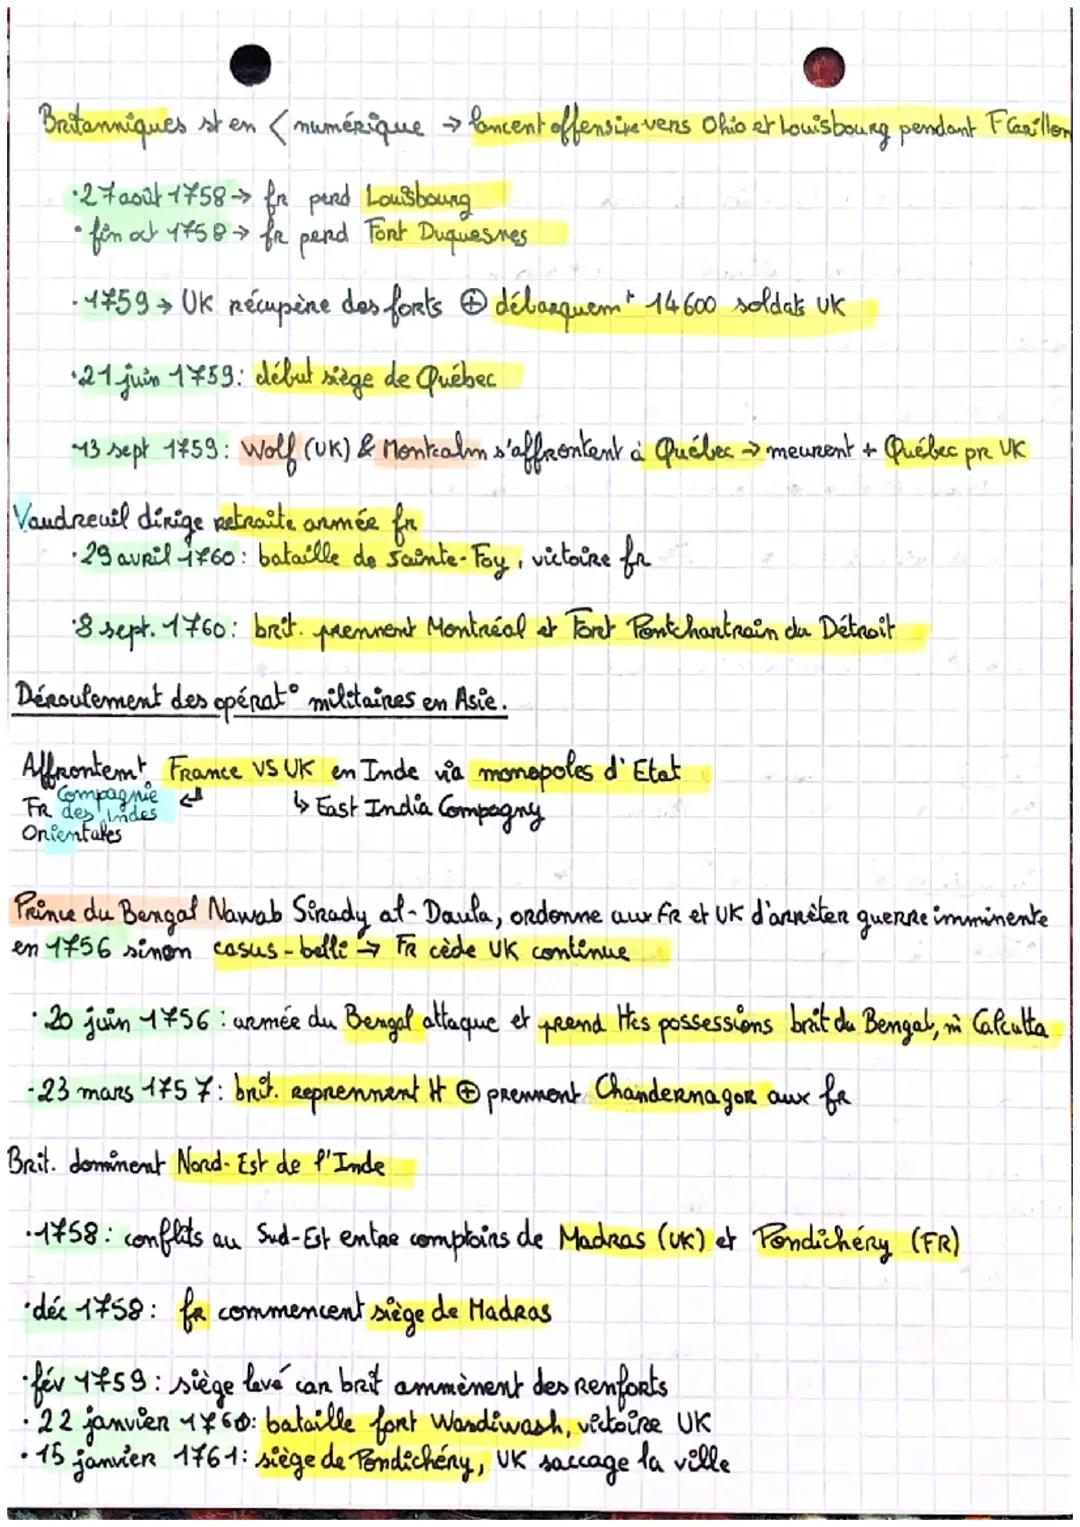 Britanniques st en < numérique → lancent offensive vers Ohio et Louisbourg pendant F Carillon
·27 août 1758 → fr perd Louisbourg
· fin oct 1758 → fr perd Fort Duquesnes
· 1759 → UK récupère des forts ⊕ débarquemt 14600 soldats UK
·21 juin 1759: début siège de Québec
·13 sept 1759: Wolf (UK) & Montcalm s'affrontent à Québec → meurent + Québec pr UK
Vaudreuil dirige retraite armée fr
·29 avril 1760: bataille de Sainte-Foy, victoire fr
·8 sept. 1760: brit. prennent Montréal et Fort Pontchartrain du Détroit
Déroulement des opérat° militaires en Asie.
Affrontemt France VS UK en Inde via monopoles d'Etat
FR Compagnie des Indes Orientales ↲ ↳ East India Compagny
Prince du Bengal Nawab Sirady al-Daula, ordonne aux FR et UK d'arrêter guerre imminente
en 1756 sinon casus-belli → FR cède UK continue
· 20 juin 1756 : armée du Bengal attaque et prend ttes possessions brit du Bengal, m̂ Calcutta
·23 mars 1757: brit. reprennent tt ⊕ prennent Chandernagor aux fr
Brit. dominent Nord-Est de l'Inde
·1758: conflits au Sud-Est entre comptoirs de Madras (UK) et Pondichéry (FR)
·déc 1758: fr commencent siège de Madras
·fév 1759: siège levé car brit ammènent des renforts
· 22 janvier 1760: bataille fort Wandiwash, victoire UK
· 15 janvier 1761: siège de Pondichéry, UK saccage la ville